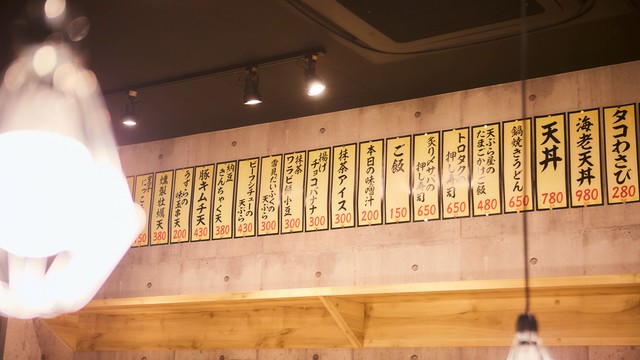 タコわさび 280
海老天丼 980
天丼 780
鍋焼きうどん 650
天ぷら屋のたまごかけご飯 480
トロタク押し寿司 650
炙り〆サバの押し寿司 650
ご飯 150
本日の味噌汁 200
抹茶アイス 300
揚げチョコバナナ 300
抹茶ワラビ餅小豆 300
雪見だいふくの天ぷら 300
ビーフシチューの天ぷら 430
納豆きんちゃく天 380
豚キムチ天 430
うずらの味玉串天 200
燻製牡蠣天 380